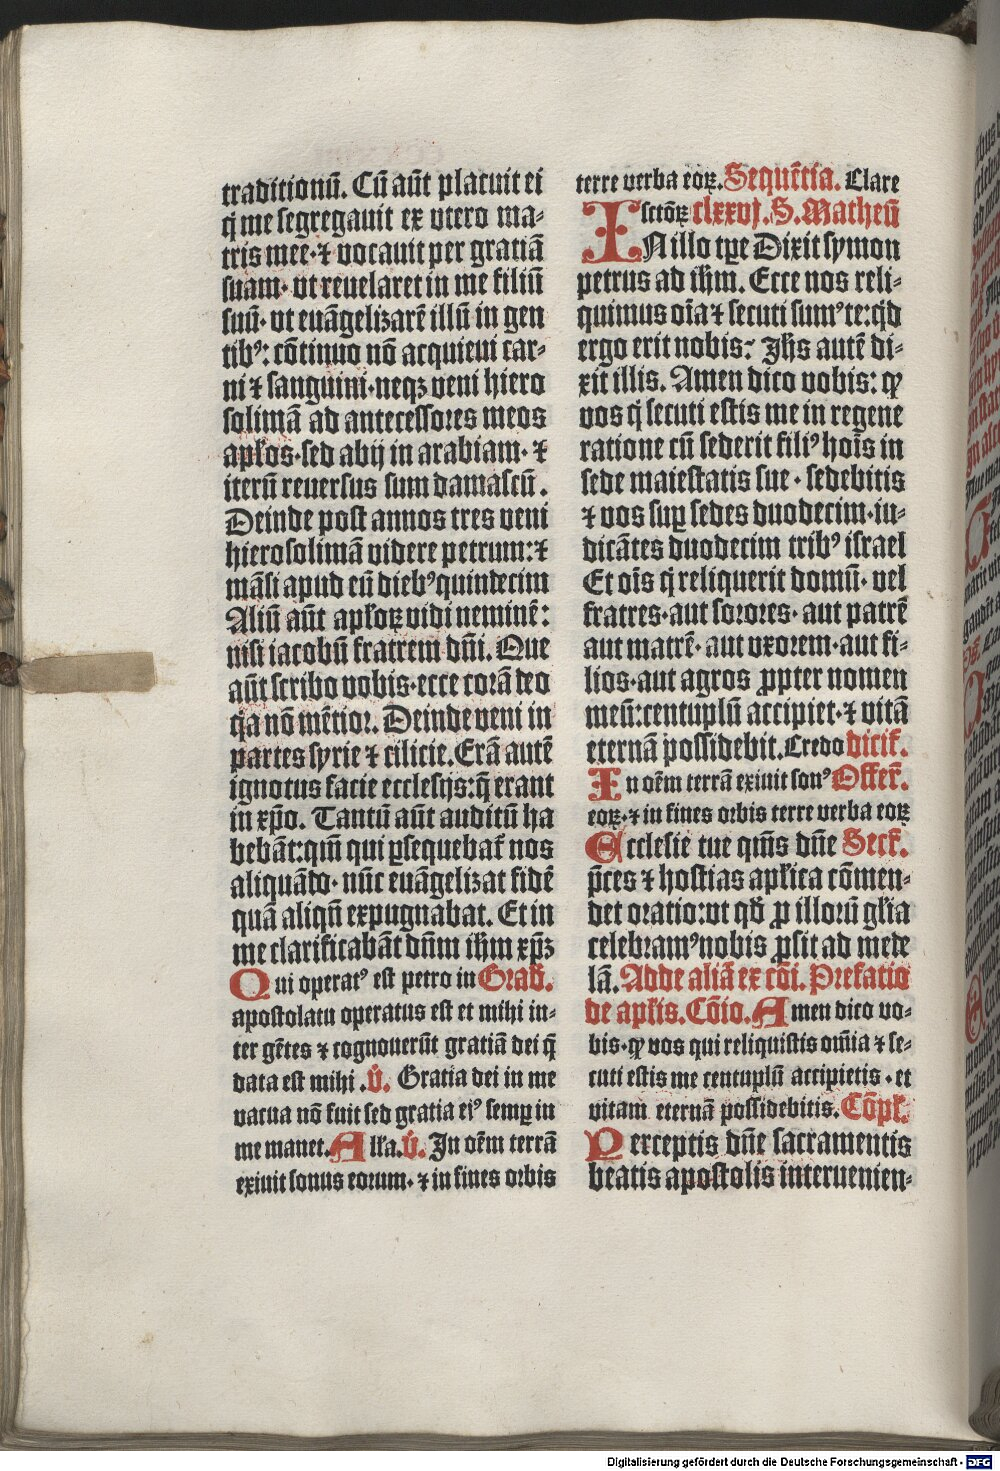 traditionū. Cū aūt placuit ei
q̄ me segregauit ex vtero ma⸗
tris mee· ⁊ vocauit per gratiā
suam· vt reuelaret in me filiū
suū· vt euāgelizarē illū in gen
tibꝰ: cōtinuo nō acquieui car⸗
ni ⁊ sanguini·neqꝫ veni hiero
solimā ad antecessores meos
apl'os·sed abij in arabiam· ⁊
iterū reuersus sum damascū.
Deinde post annos tres veni
hierosolimā videre petrum:⁊
māsi apud eū diebꝰ quindecim
Aliū aūt apl'oꝝ vidi neminē:
nisi iacobū fratrem dn̄i. Que
aūt scribo vobis·ecce corā deo
q̄a nō mētior. Deinde veni in
partes syrie ⁊ cilicie. Erā autē
ignotus facie ecclesijs:q̄ erant
in xp̄o. Tantū aūt auditū ha
bebāt:qm̄ qui ꝑsequebat̄ nos
aliquādo· nūc euāgelizat fidē
quā aliqn̄ expugnabat. Et in
me clarificabāt dn̄m ih̄m xp̄ꝫ
Qui operatꝰ est petro in Grad̄.
apostolatu operatus est et mihi in⸗
ter gētes ⁊ cognouerūt gratiā dei q̄
data est mihi .V̄. Gratia dei in me
vacua nō fuit sed gratia eiꝰ semꝑ in
me manet. All'a. V̄. In oēm terrā
exiuit sonus eorum· ⁊ in fines orbis
terre verba eoꝝ. Sequētia. Clare
sctōꝝ clxxvj. S. Matheū
IN illo tꝑe Dixit symon
petrus ad ih̄m. Ecce nos reli⸗
quimus oīa ⁊ secuti sumꝰ te:qͥd
ergo erit nobis? Ih̄s autē di⸗
xit illis. Amen dico vobis: ꝙ
vos q̄ secuti estis me in regene
ratione cū sederit filiꝰ hoīs in
sede maiestatis sue · sedebitis
⁊ vos suꝑ sedes duodecim·iu⸗
dicātes duodecim tribꝰ israel
Et oīs q̄ reliquerit domū· vel
fratres·aut sorores· aut patrē
aut matrē· aut vxorem·aut fi⸗
lios·aut agros ꝓpter nomen
meū:centuplū accipiet·⁊ vitā
eternā possidebit. Credo dicit̄.
In oēm terrā exiuit sonꝰ Offer̄.
eoꝝ·⁊ in fines orbis terre verba eoꝝ
Ecclesie tue qm̄s dn̄e Secr̄.
p̄ces ⁊ hostias apl'ica cōmen⸗
det oratio:vt qd̄ ꝓ illorū gl'ia
celebramꝰ nobis ꝓsit ad mede
lā. Adde aliā ex cōi. Prefatio
de apl'is. Cōio. Amen dico vo⸗
bis·ꝙ vos qui reliquistis om̄ia ⁊ se⸗
cuti estis me centuplū accipietis · et
vitam eternā possidebitis. Cōpl'.
Perceptis dn̄e sacramentis
beatis apostolis interuenien⸗
Digitalisierung gefördert durch die Deutsche Forschungsgemeinschaft - DFG